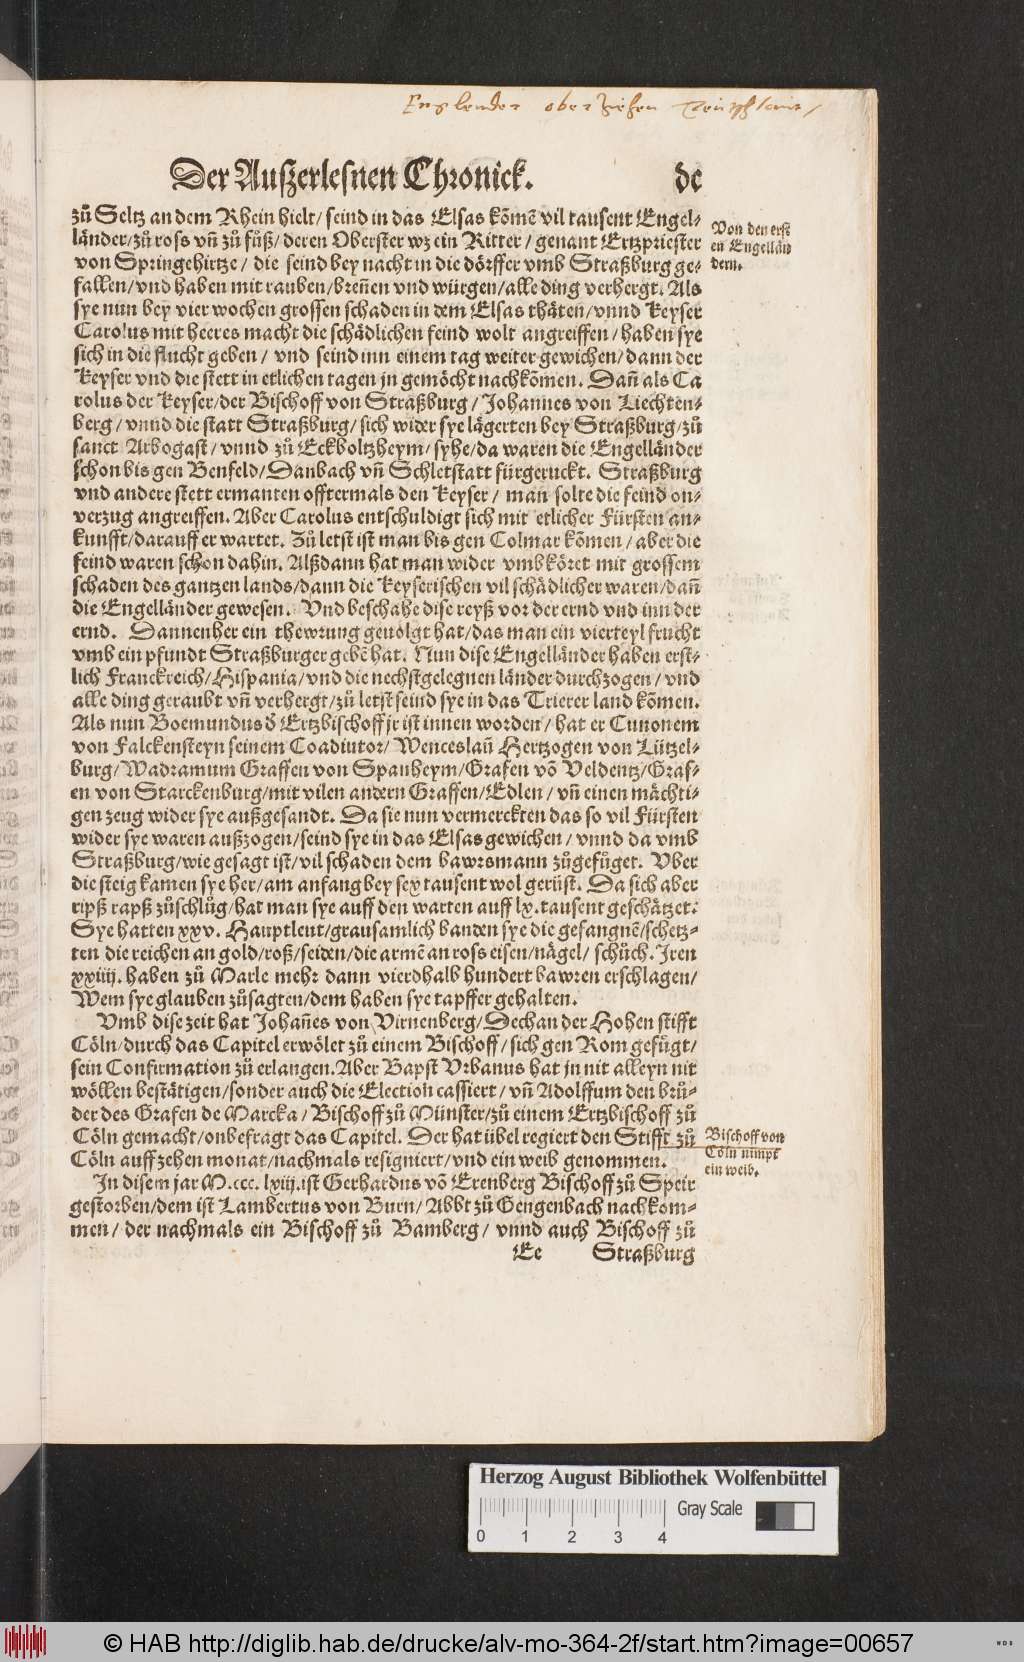 Englender oberziehen Teutschlant /
Der Außerlesnen Chronick. de
zů Seltz an dem Rhein hielt/ seind in das Elsas kom̃e vil tausent Engel-
länder/zů ross vñ zů fůß/ deren Oberster wz ein Ritter / genant Ertzpriester
von Springehirtze / die seind bey nacht in die dörffer vmb Straßburg ge-
fallen/vnd haben mit rauben/breñen vnd würgen/alle ding verhergt. Als
sye nun bey vier wochen grossen schaden in dem Elsas thäten/vnnd Keyser
Carolus mit heeres macht die schädlichen feind wolt angreiffen / haben sye
sich in die flucht geben / vnd seind inn einem tag weiter gewichen/ dann der
Keyser vnd die stett in etlichen tagen jn gemöcht nachkom̃en. Dañ als Ca
rolus der Keyser/der Bischoff von Straßburg / Johannes von Liechten-
berg / vnnd die statt Straßburg / sich wider sye lägerten bey Straßburg/zů
sanct Arbogast / vnnd zů Eckboltzheym/ syhe/da waren die Engelländer
schon bis gen Benfeld/Danbach vñ Schletstatt fürgeruckt. Straßburg
vnd andere stett ermanten offtermals den Keyser / man solte die feind on-
verzug angreiffen. Aber Carolus entschuldigt sich mit etlicher Fürsten an-
kunfft/darauff er wartet. Zů letst ist man bis gen Colmar kom̃en / aber die
feind waren schon dahin. Alßdann hat man wider vmbköret mit grossem
schaden des gantzen lands/dann die Keyserischen vil schädlicher waren/dañ
die Engelländer gewesen. Vnd beschahe dise reyß vor der ernd vnd inn der
ernd. Dannenher ein thewrung geuolgt hat/das man ein vierteyl frucht
vmb ein pfundt Straßburger gebẽ hat. Nun dise Engelländer haben erst-
lich Franckreich/Hispania/vnd die nechstgelegnen länder durchzogen / vnd
alle ding geraubt vñ verhergt/zů letst seind sye in das Trierer land kom̃en.
Als nun Boemundus d̕ Ertzbischoff jr ist innen worden / hat er Cunonem
von Falckensteyn seinem Coadiutor/ Wenceslañ Hertzogen von Lützel-
burg/Wadramum Graffen von Spanheym/Grafen võ Veldentz/Graf-
en von Starckenburg/mit vilen andern Graffen/Edlen / vñ einen mächti-
gen zeug wider sye außgesandt. Da sie nun vermerckten das so vil Fürsten
wider sye waren außzogen/seind sye in das Elsas gewichen / vnnd da vmb
Straßburg/wie gesagt ist/vil schaden dem bawrsmann zůgefůget. Vber
die steig kamen sye her/am anfang bey sex tausent wol gerüst. Da sich aber
ripß rapß zůschlůg/hat man sye auff den warten auff lx. tausent geschätzet.
Sye hatten xxv. Hauptleut/grausamlich banden sye die gefangnẽ/schetz-
ten die reichen an gold/roß/seiden/die armẽ an ross eisen/nägel/ schůch. Jren
xxiiij. haben zů Marle mehr dann vierdhalb hundert bawren erschlagen/
Wem sye glauben zůsagten/dem haben sye tapffer gehalten.
Vmb dise zeit hat Johañes von Virnenberg/Dechan der Hohen stifft
Cöln/durch das Capitel erwölet zů einem Bischoff/sich gen Rom gefůgt/
sein Confirmation zů erlangen. Aber Bapst Vrbanus hat jn nit alleyn nit
wöllen bestätigen/sonder auch die Election cassiert/ vñ Adolffum den brů-
der des Grafen de Marcka / Bischoff zů Münster/zů einem Ertzbischoff zů
Cöln gemacht/onbefragt das Capitel. Der hat übel regiert den Stifft zů
Cöln auff zehen monat/nachmals resigniert/vnd ein weib genommen.
In disem jar M.ccc. lxiij. ist Gerhardus võ Erenberg Bischoff zů Speir
gestorben/dem ist Lambertus von Burn/ Abbt zů Gengenbach nachkom-
men/ der nachmals ein Bischoff zů Bamberg / vnnd auch Bischoff zů
Ee Straßburg
Von den erst
en Engellän
dern.
Bischoff von
Cöln nimpt
ein weib.
Herzog August Bibliothek Wolfenbüttel
Gray Scale
0 1 2 3 4
© HAB http://diglib.hab.de/drucke/alv-mo-364-2f/start.htm?image=00657